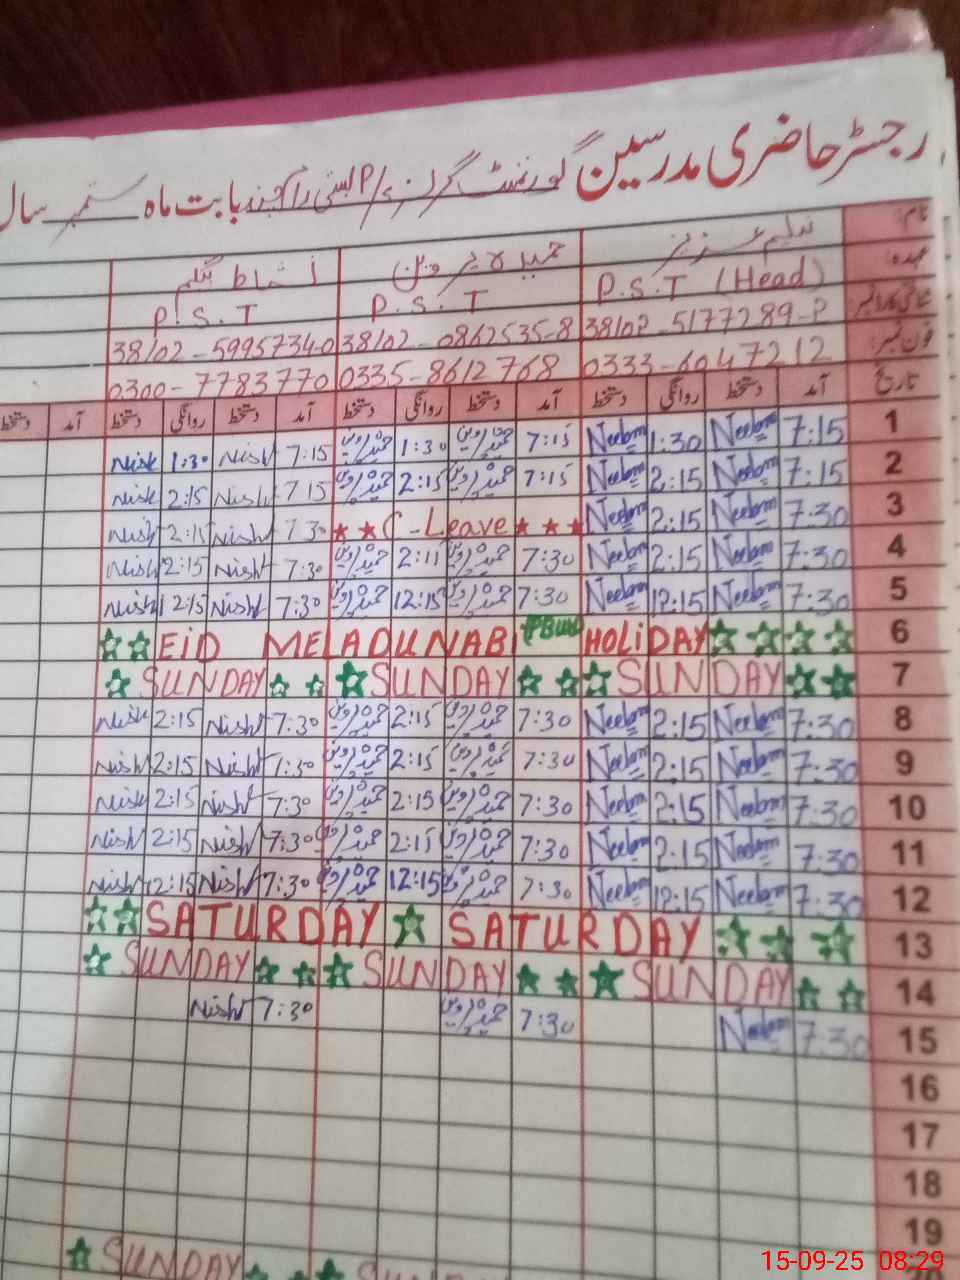 رجسٹر حاضری مدرسین گورنمنٹ گرلز P/ بستی رانجھند بابت ماہ ستمبر سال
نام: نیلم عزیز حمیدہ پروین نشاط بیگم
عہدہ: P.S.T (Head) P.S.T P.S.T
شناختی کارڈ نمبر: 38102-5177289-2 38102-0862535-8 38102-5995734-0
فون نمبر: 0333-6047212 0335-8612768 0300-7783770
تاریخ آمد دستخط روانگی دستخط آمد دستخط روانگی دستخط آمد دستخط روانگی دستخط آمد دستخط
1 7:15 Neelam 1:30 Neelam 7:15 حمیدہ پروین 1:30 حمیدہ پروین 7:15 Nish 1:30 Nish
2 7:15 Neelam 2:15 Neelam 7:15 حمیدہ پروین 2:15 حمیدہ پروین 7 15 Nish 2:15 Nish
3 7:30 Neelam 2:15 Neelam C-Leave 7 30 Nish 2:15 Nish
4 7:30 Neelam 2:15 Neelam 7:30 حمیدہ پروین 2:15 حمیدہ پروین 7:30 Nish 2:15 Nish
5 7:30 Neelam 12:15 Neelam 7:30 حمیدہ پروین 12:15 حمیدہ پروین 7:30 Nish 12:15 Nish
EiD MELADUNABI PBUH HOLIDAY 6
SUNDAY SUNDAY SUNDAY 7
8 7:30 Neelam 2:15 Neelam 7:30 حمیدہ پروین 2:15 حمیدہ پروین 7:30 Nish 2:15 Nish
9 7:30 Neelam 2:15 Neelam 7:30 حمیدہ پروین 2:15 حمیدہ پروین 7:30 Nish 2:15 Nish
10 7:30 Neelam 2:15 Neelam 7:30 حمیدہ پروین 2:15 حمیدہ پروین 7:30 Nish 2:15 Nish
11 7:30 Neelam 2:15 Neelam 7:30 حمیدہ پروین 2:15 حمیدہ پروین 7:30 Nish 2:15 Nish
12 7:30 Neelam 12:15 Neelam 7:30 حمیدہ پروین 12:15 حمیدہ پروین 7:30 Nish 12:15 Nish
SATURDAY SATURDAY 13
SUNDAY SUNDAY SUNDAY 14
15 7:30 Neelam 7:30 حمیدہ پروین 7:30 Nish
16
17
18
19
SUNDAY SUNDAY
15-09-25 08:29